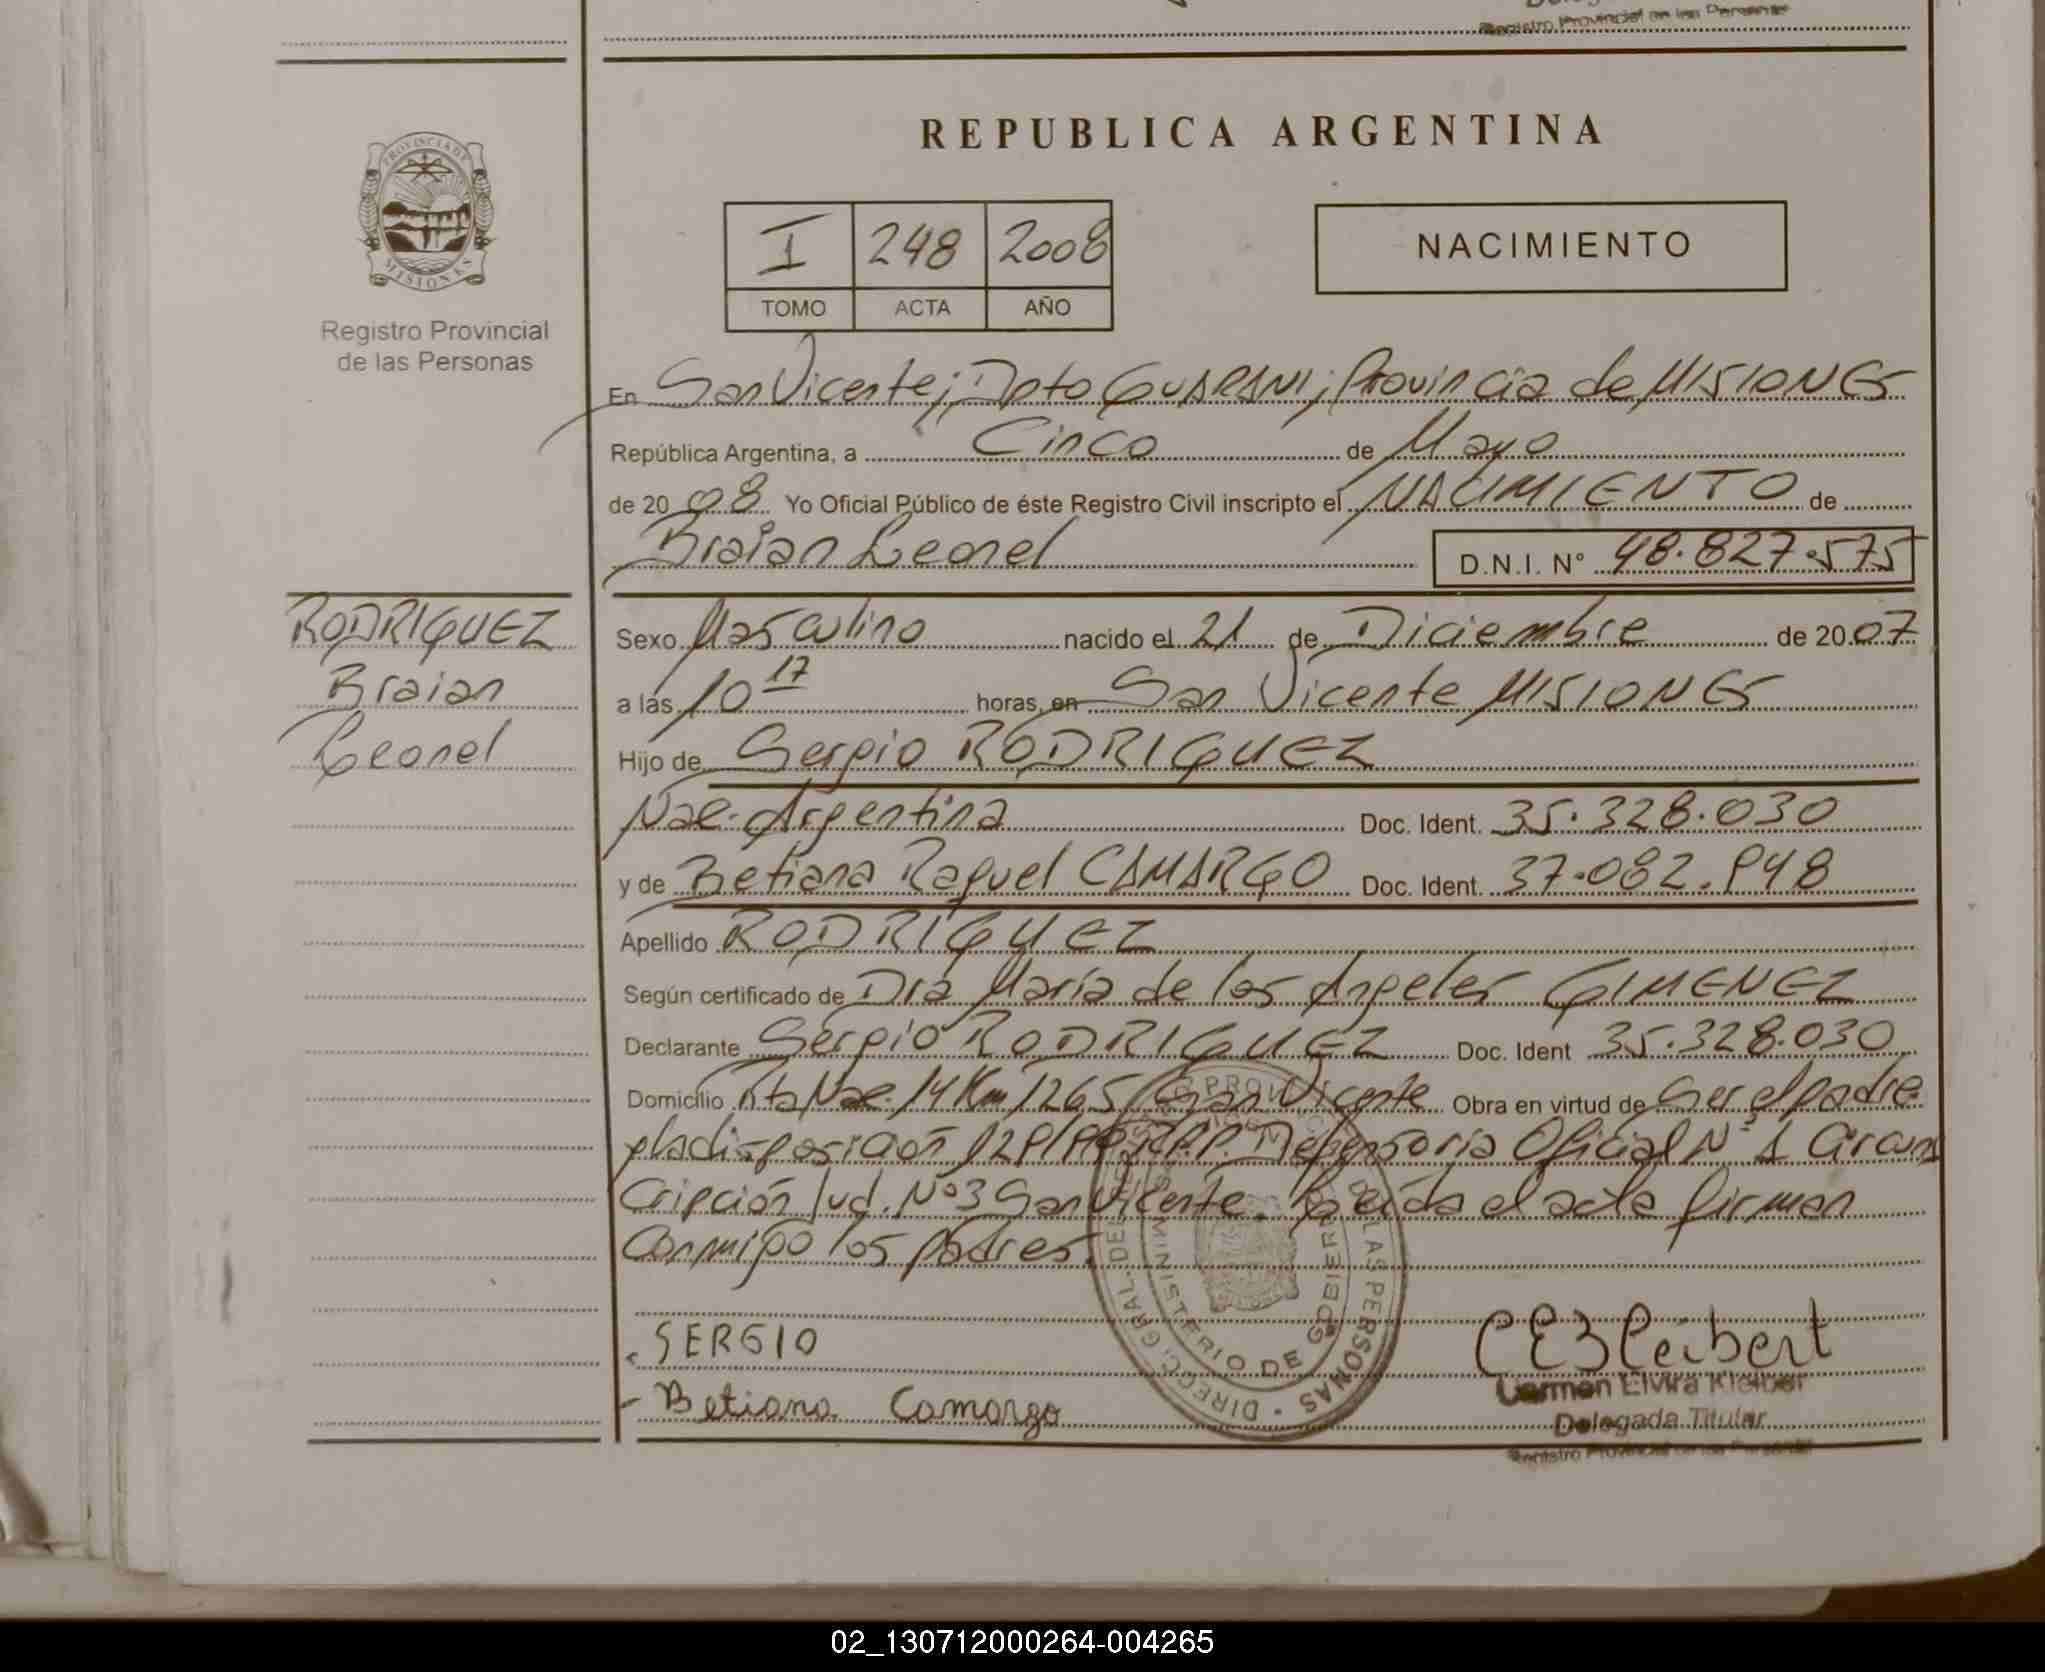 Registro Provincial de las Personas
REPUBLICA ARGENTINA
PROVINCIA DE
MISIONES
Registro Provincial
de las Personas
I 248 2008
TOMO ACTA AÑO
NACIMIENTO
En San Vicente; Dpto GUARANI; Provincia de MISIONES
República Argentina, a Cinco de Mayo
de 2008 Yo Oficial Público de éste Registro Civil inscripto el NACIMIENTO de
Braian Leonel D.N.I. N° 48.827.575
RODRIGUEZ
Braian
Leonel
Sexo Masculino nacido el 21 de Diciembre de 2007
a las 10 17 horas, en San Vicente MISIONES
Hijo de Sergio RODRIGUEZ
Nac. Argentina Doc. Ident. 35.328.030
y de Betiana Raquel CAMARGO Doc. Ident. 37.082.948
Apellido RODRIGUEZ
Según certificado de Dra María de los Angeles GIMENEZ
Declarante Sergio RODRIGUEZ Doc. Ident 35.328.030
Domicilio Rta Nac. 14 Km 1265 San Vicente Obra en virtud de Ser el padre
y la disposición Defensoria Oficial N° 1 Circuns
Cripción Jud. N°3 San Vicente. Leída el acta firman
Conmigo los padres.
SERGIO
Betiana Camargo
CEKleibert
Carmen Elvira Kleiber
Delegada Titular
Registro Provincial de las Personas
DIRECC. GRAL. DEL REG. PROV. DE LAS PERSONAS
MINISTERIO DE GOBIERNO
02_130712000264-004265